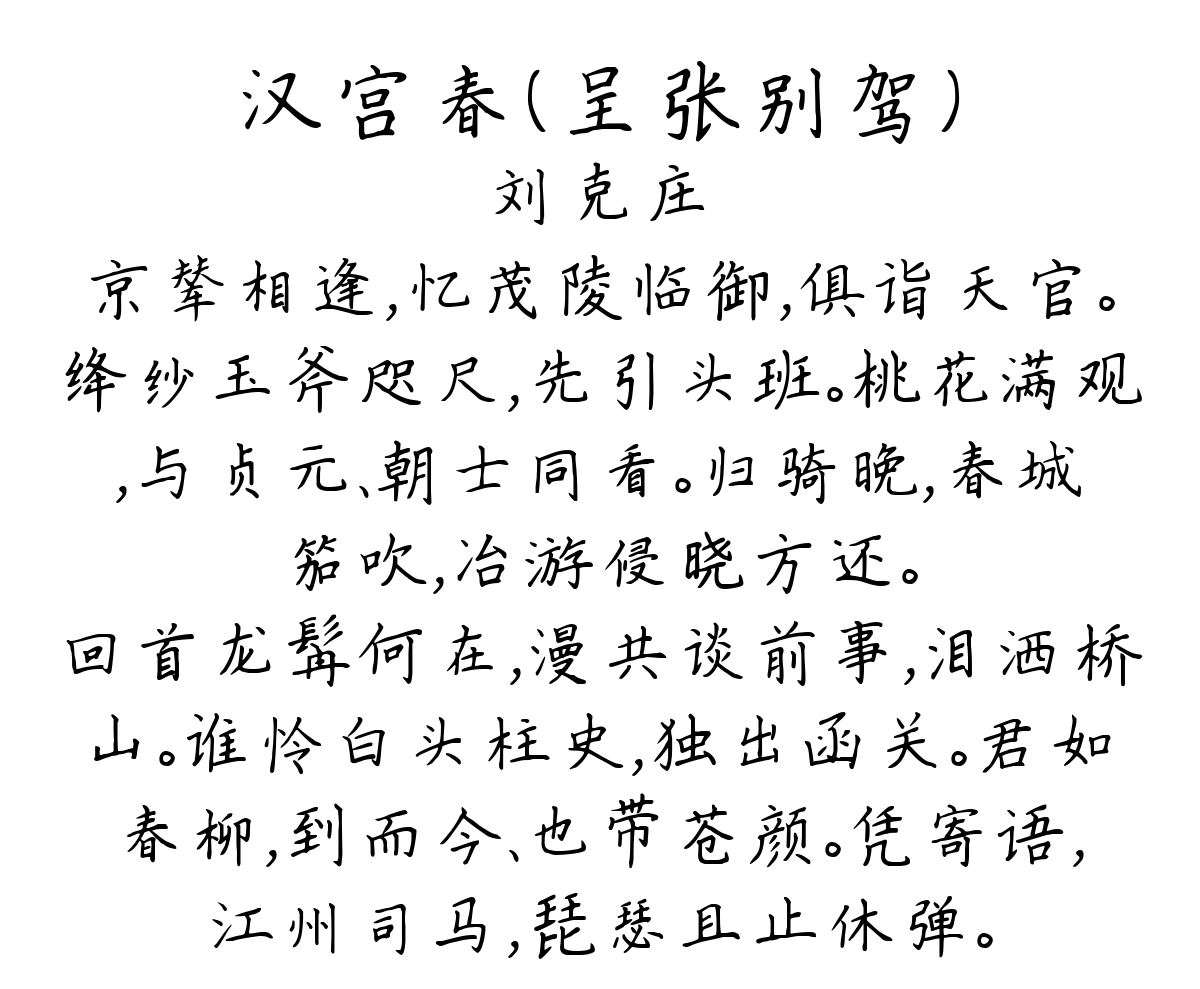 汉宫春(呈张别驾)
刘克庄
京辇相逢,忆茂陵临御,俱诣天官。
绛纱玉斧咫尺,先引头班。桃花满观
,与贞元、朝士同看。归骑晚,春城
笳吹,冶游侵晓方还。
回首龙髯何在,漫共谈前事,泪洒桥
山。谁怜白头柱史,独出函关。君如
春柳,到而今、也带苍颜。凭寄语,
江州司马,琵瑟且止休弹。